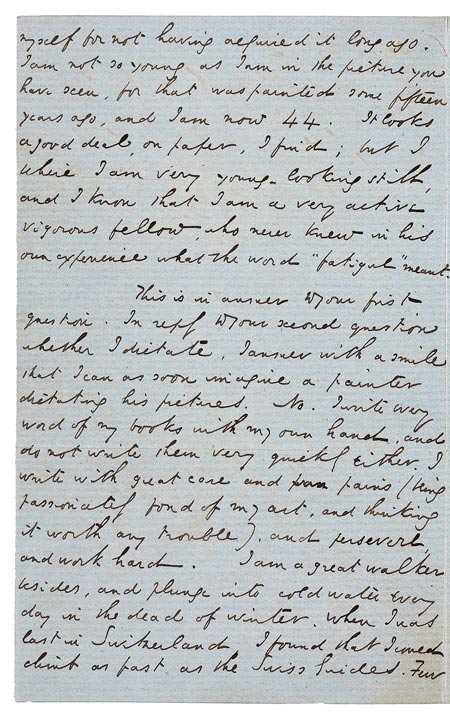 myself for not having acquired it long ago.
I am not so young as I am in the picture you
have seen, for that was painted some fifteen
years ago, and I am now 44. It looks
a good deal, on paper, I find; but I
believe I am very young-looking still,
and I know that I am a very active
vigorous fellow, who never knew in his
own experience what the word "fatigue" meant.
This is in answer to your first
question. In reply to your second question
whether I dictate, I answer with a smile
that I can as soon imagine a painter
dictating his pictures. No. I write every
word of my books with my own hand, and
do not write them very quickly either. I
write with great care and pains (being
passionately fond of my art, and thinking
it worth any trouble), and persevere,
and work hard. I am a great walker
besides, and plunge into cold water every
day in the dead of winter. When I was
last in Switzerland I found that I could
climb as fast as the Swiss Guides. Few